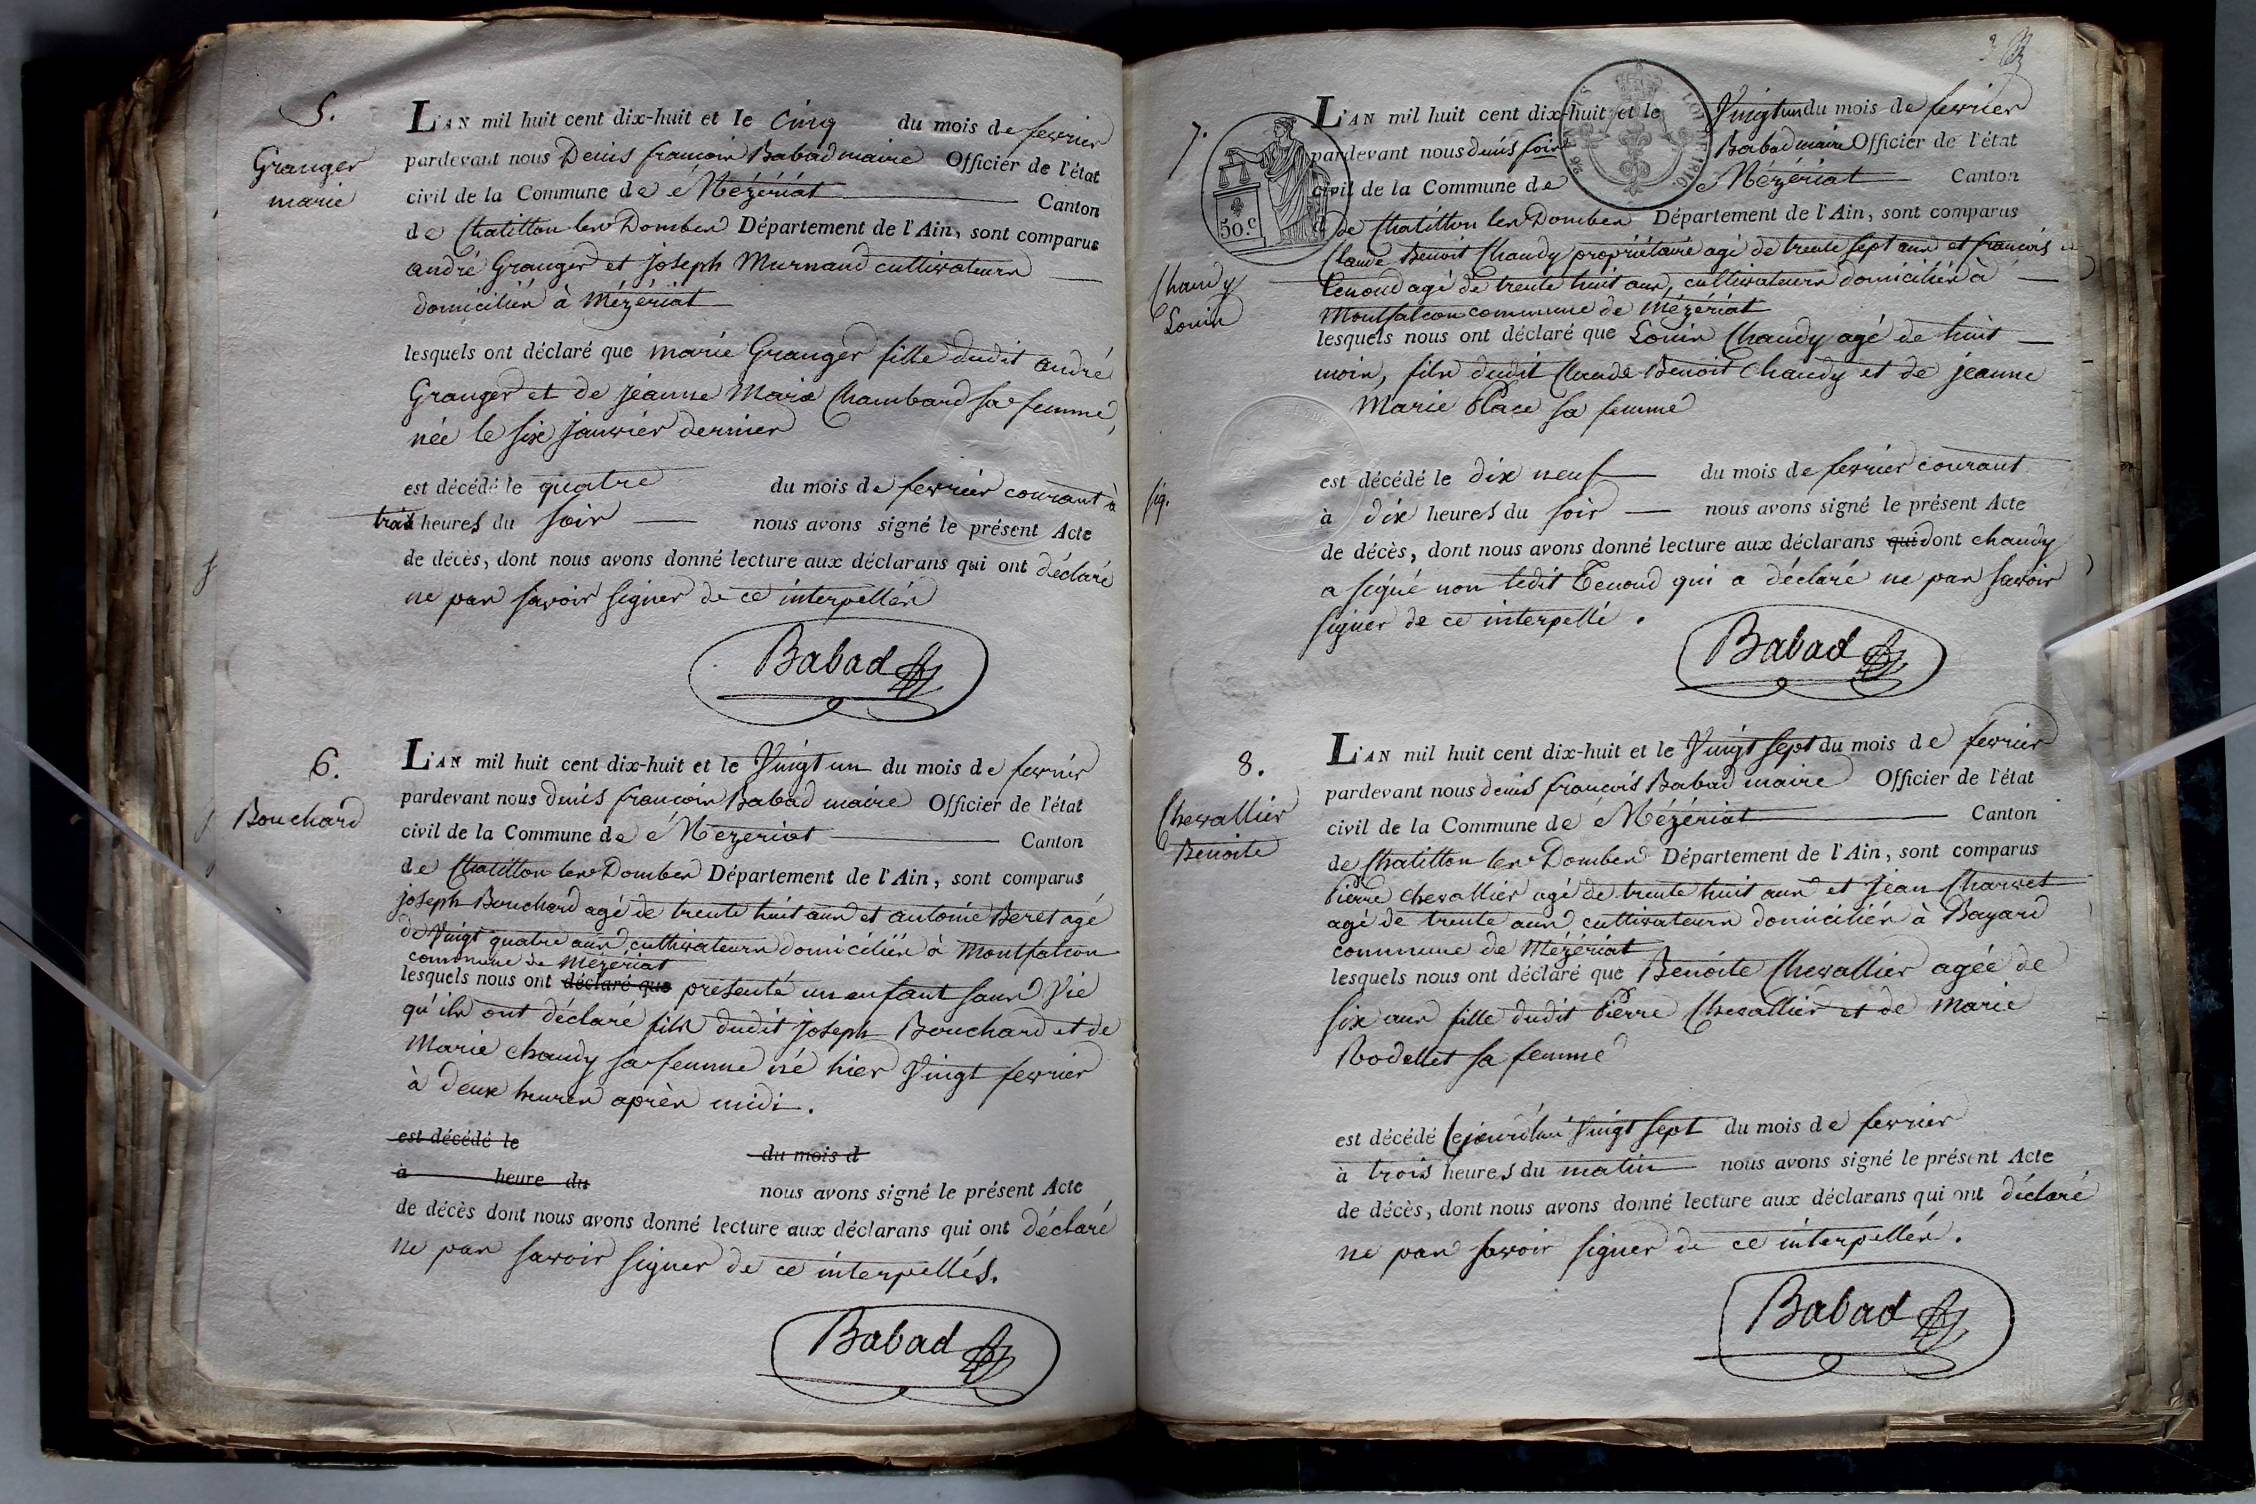 5.
Granger
marie
L'AN mil huit cent dix-huit et le cinq du mois de fevrier
pardevant nous Denis francois Babad maire Officier de l'état
civil de la Commune de Mézériat Canton
de Chatillon les Dombes Département de l'Ain, sont comparus
andré Granger et joseph Murnaud cultivateurs
domiciliés à Mézériat
lesquels ont déclaré que marie Granger fille dudit andré
Granger et de jeanne Marie Chambard sa femme,
née le six janvier dernier
est décédé le quatre du mois de fevrier courant à
trois heures du soir nous avons signé le présent Acte
de décès, dont nous avons donné lecture aux déclarans qui ont déclaré
ne pas savoir signer de ce interpellés
Babad
6.
Bouchard
L'AN mil huit cent dix-huit et le Vingt un du mois de fevrier
pardevant nous denis francois Babad maire Officier de l'état
civil de la Commune de Mézeriat Canton
de Chatillon les Dombes Département de l'Ain, sont comparus
joseph Bouchard agé de trente huit ans et antoine Beret agé
de Vingt quatre ans, cultivateurs domiciliés à Montfalcon
commune de Mézériat
lesquels nous ont déclaré que présenté un enfant sans Vie
qu'ils ont déclaré fils dudit joseph Bouchard et de
Marie chaudy sa femme né hier Vingt fevrier
à deux heures après midi.
est décédé le du mois d
à heure du nous avons signé le présent Acte
de décès dont nous avons donné lecture aux déclarans qui ont déclaré
ne pas savoir signer de ce interpellés.
Babad
7.
Chaudy
Louis
50.c
L'AN mil huit cent dix-huit et le Vingt un du mois de fevrier
pardevant nous denis Babad maire Officier de l'état
civil de la Commune de Mézériat Canton
de Chatillon les Dombes Département de l'Ain, sont comparus
Claude Benoit Chaudy propriétaire agé de trente sept ans et francois
Tenoud agé de trente huit ans, cultivateurs domiciliés à
Montfalcon commune de Mézériat
lesquels nous ont déclaré que Louis Chaudy agé de huit
mois, fils dudit Claude Benoit Chaudy et de jeanne
Marie Place sa femme
est décédé le dix neuf du mois de fevrier courant
sig.
à dix heures du soir nous avons signé le présent Acte
de décès, dont nous avons donné lecture aux déclarans qui dont chaudy
a signé non ledit Tenoud qui a déclaré ne pas savoir
signer de ce interpellé.
Babad
8.
Chevallier
Benoite
L'AN mil huit cent dix-huit et le Vingt sept du mois de fevrier
pardevant nous denis francois Babad maire Officier de l'état
civil de la Commune de Mézériat Canton
de Chatillon les Dombes Département de l'Ain, sont comparus
Pierre chevallier agé de trente huit ans et Jean Charvet
agé de trente ans, cultivateurs domiciliés à Bayard
commune de Mézériat
lesquels nous ont déclaré que Benoite Chevallier agée de
six ans fille dudit Pierre Chevallier et de Marie
Rodellet sa femme
est décédé cejourd'hui Vingt sept du mois de fevrier
à trois heures du matin nous avons signé le présent Acte
de décès, dont nous avons donné lecture aux déclarans qui ont déclaré
ne pas savoir signer de ce interpellés.
Babad